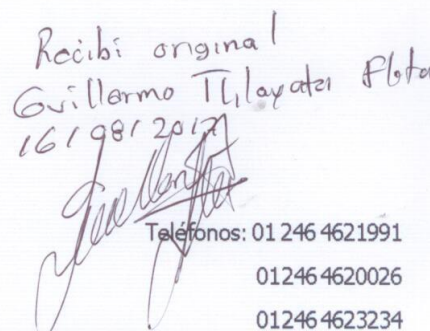 Recibi original
Guillermo Tlilayatzi Flota
16/08/2017
Teléfonos: 01 246 4621991
01246 4620026
01246 4623234